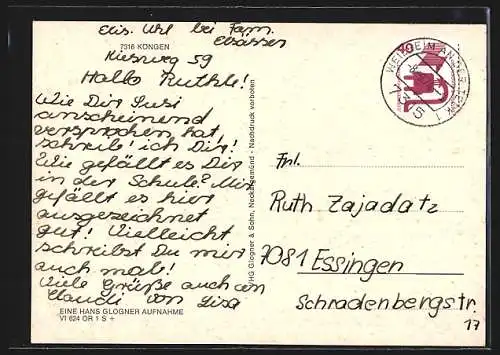 Elis. Uhl bei Fam.
Elsässer
7316 KÖNGEN
Kiesweg 59
Hallo Ruthle!
Wie Dir Susi
anscheinend
versprochen hat,
schreib' ich Dir!
Wie gefällt es Dir
in der Schule? Mir
gefällt es hier
ausgezeichnet
gut! Vielleicht
schreibst Du mir
auch mal!
Viele Grüße auch an
Claudi von Lisa
EINE HANS GLOGNER AUFNAHME
VI 624 OR 1 S +
HG Glogner & Sohn, Neckargemünd - Nachdruck verboten
Frl.
Ruth Zajadatz
7081 Essingen
Schradenbergstr.
17